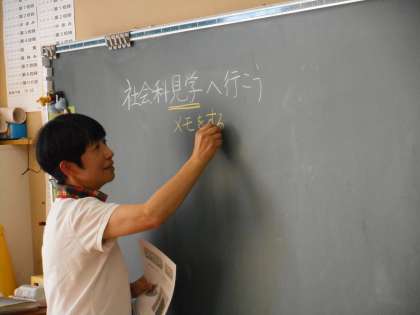 社会科見学へ行こう
メモをする